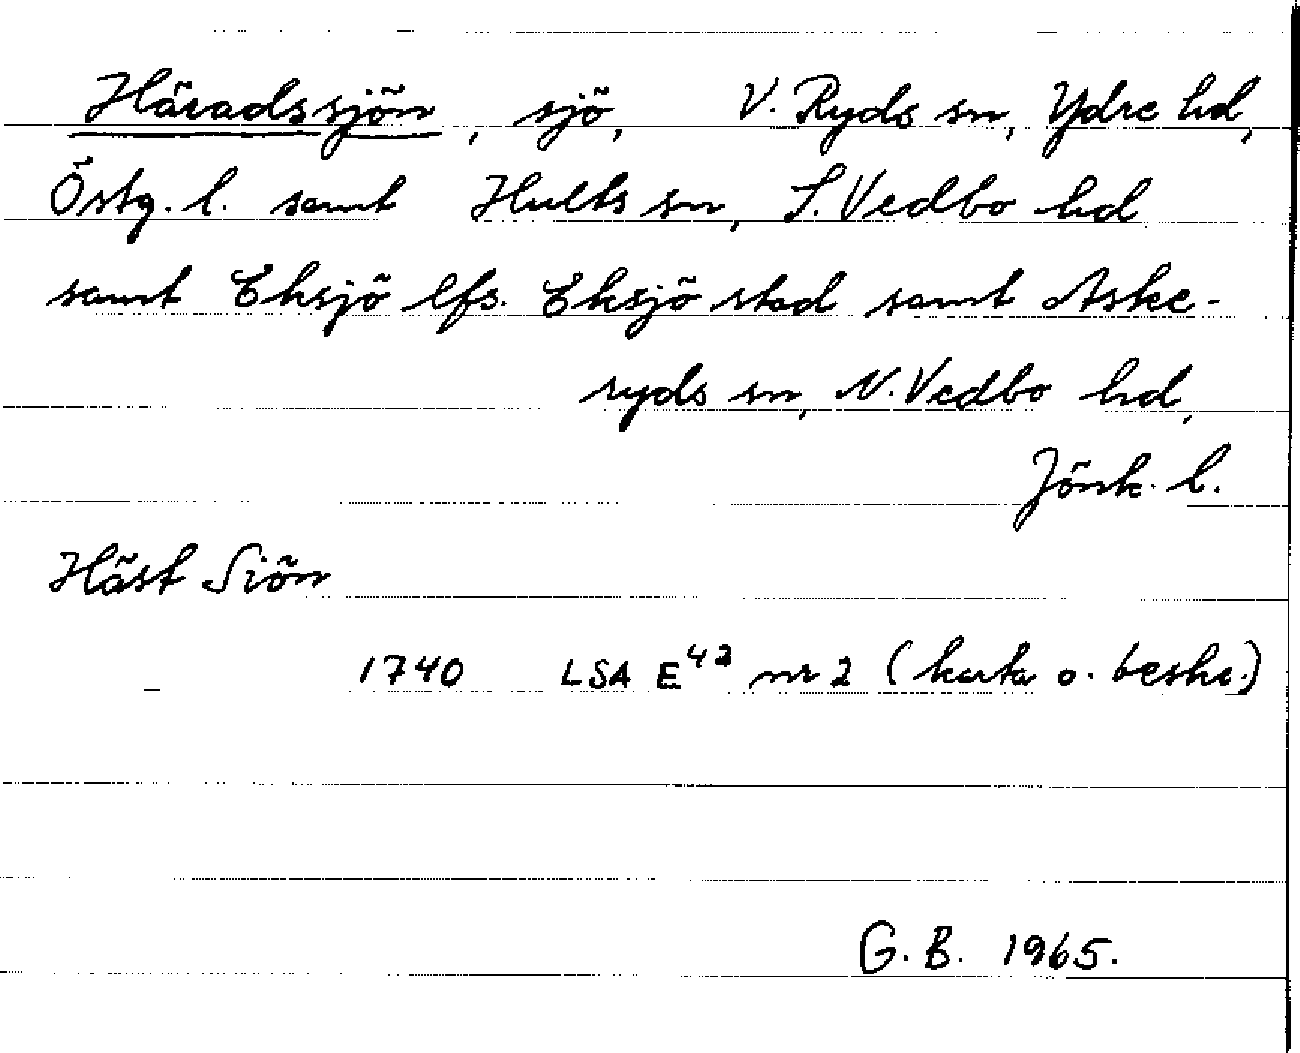 Häradssjön, sjö, V. Ryds sn, Ydre hd,
Östg. l. samt Hults sn, S. Vedbo hd
samt Eksjö lfs. Eksjö stad samt Aske-
ryds sn, N. Vedbo hd,
Jönk. l.
Häst Siön
1740 LSA E42 nr 2 (karta o. beskr.)
G. B. 1965.